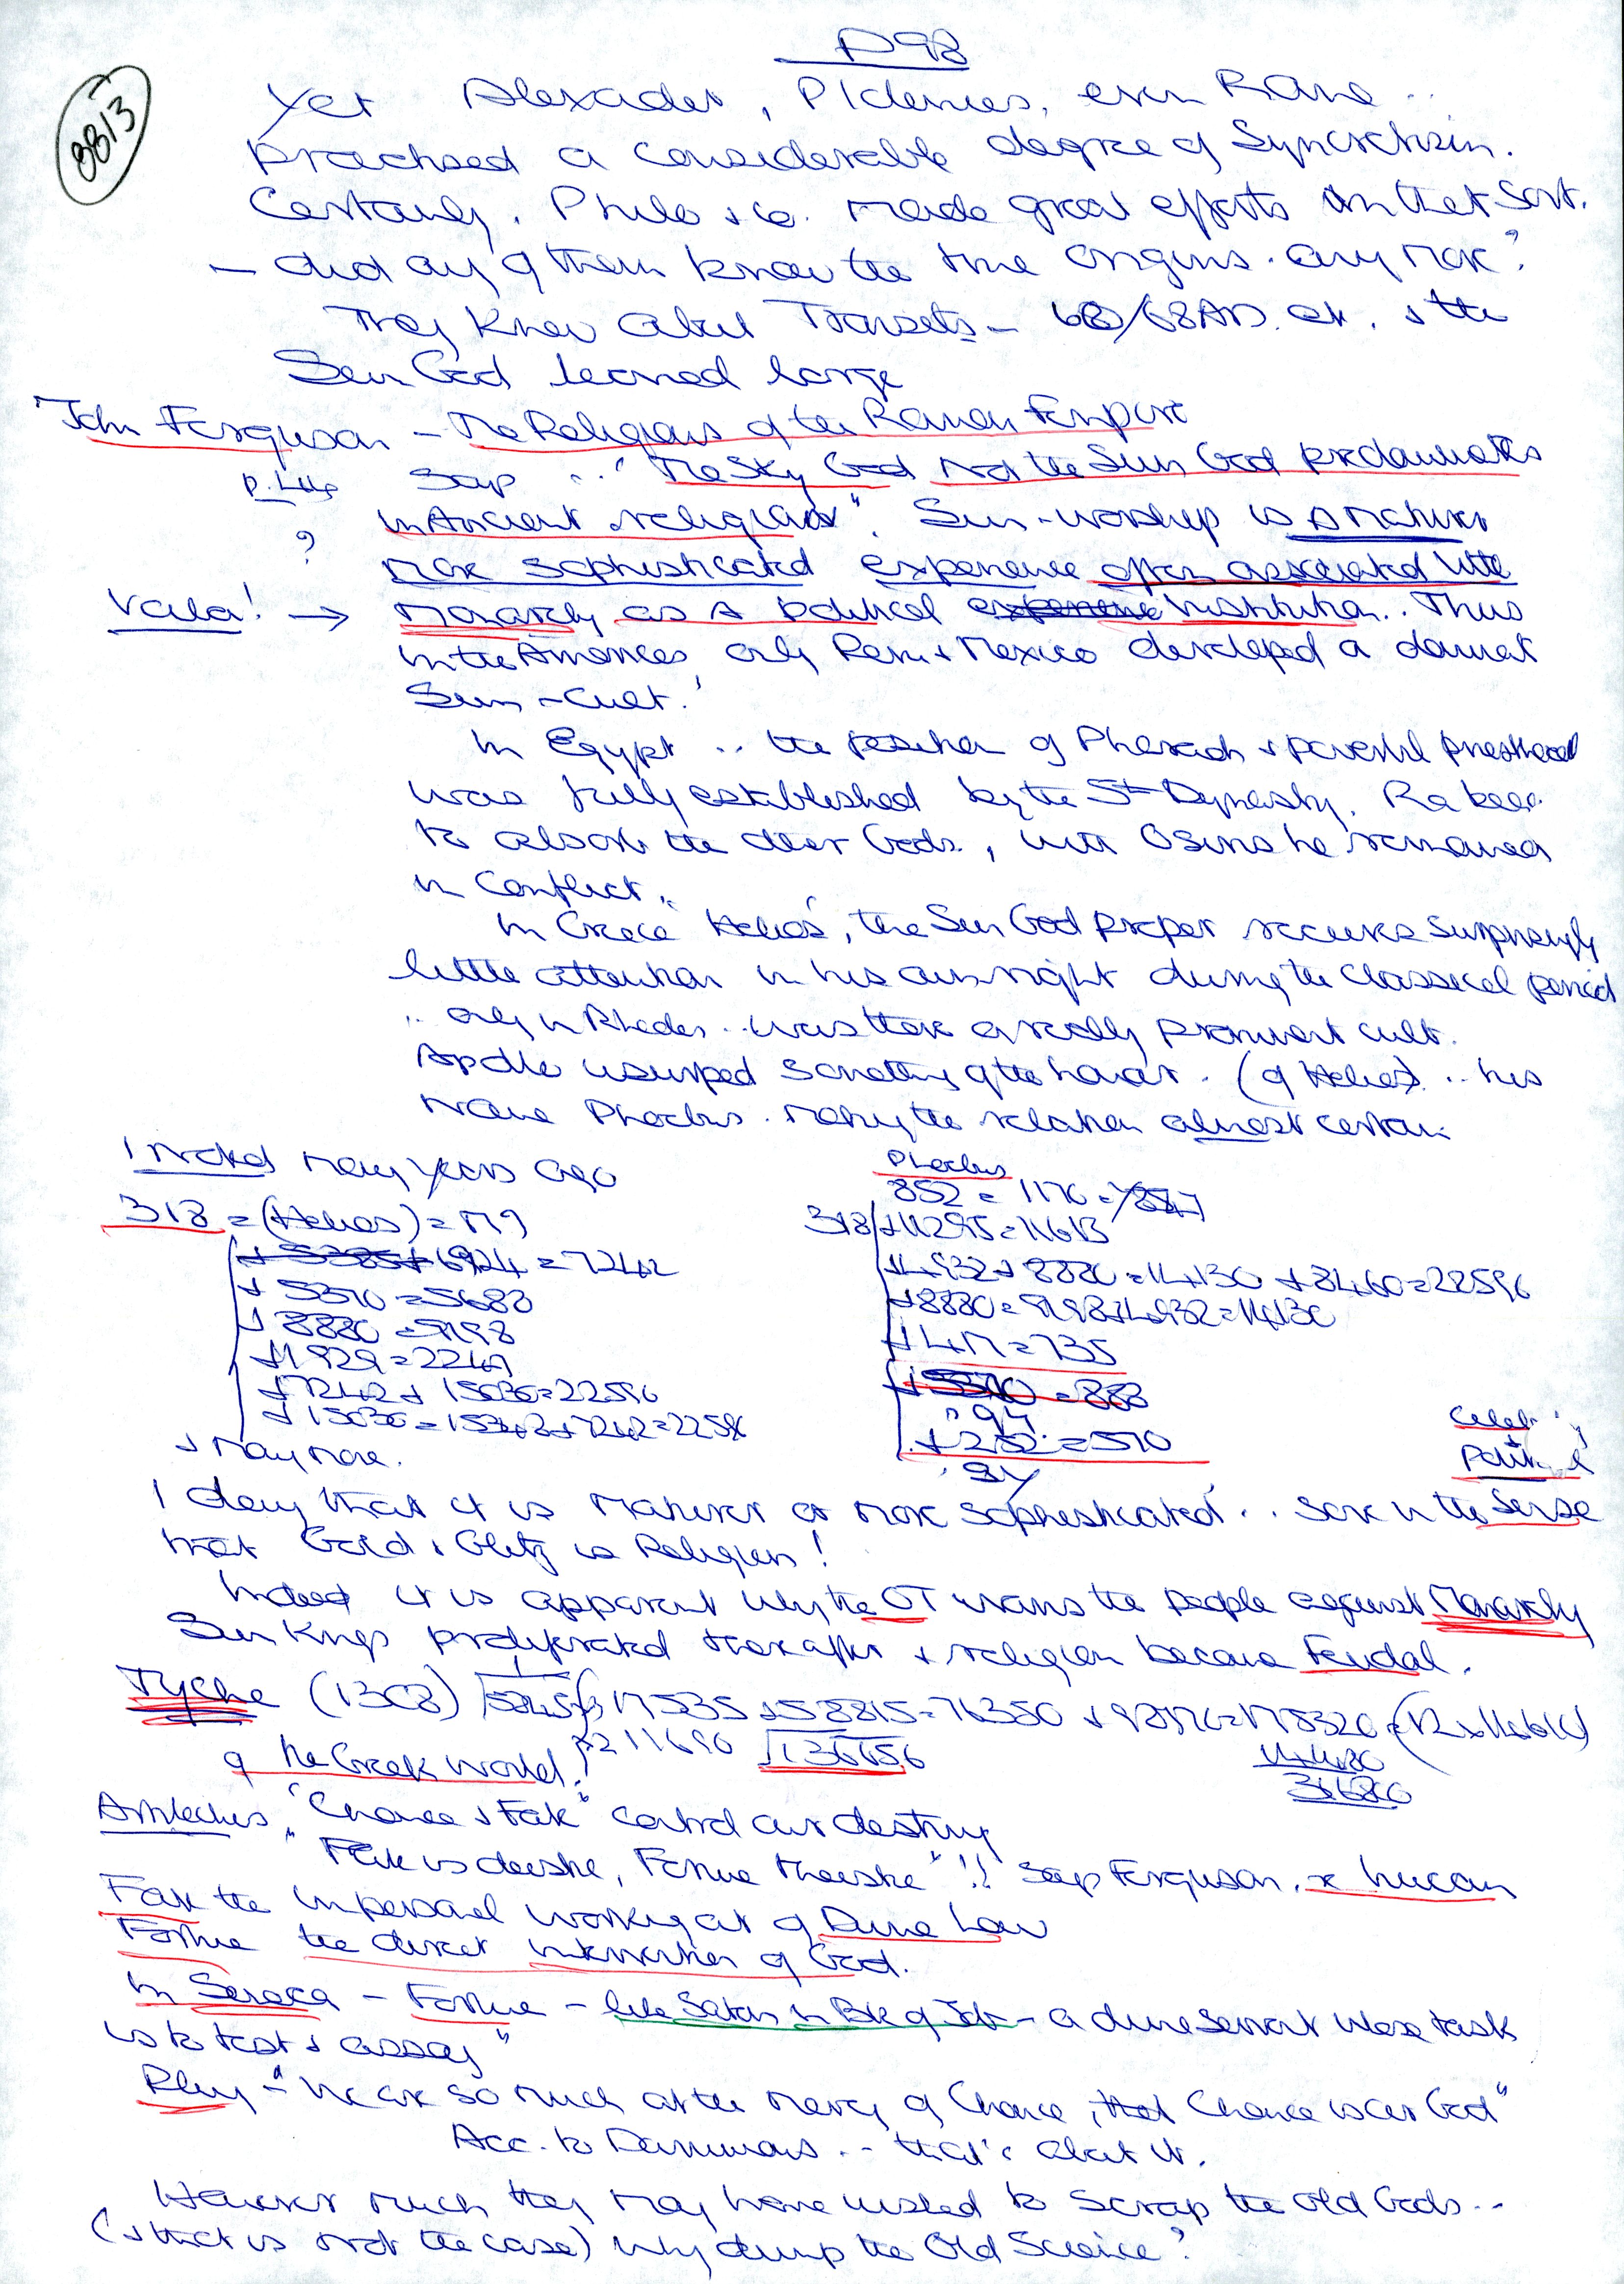 P98
8813
Yet Alexander, Ptolemies, even Rome ..
practised a considerable degree of Syncretism.
Certainly, Philo & co. made great efforts in that sort.
— did any of them know the true origins. any more?
They knew about Transits — 60/68AD. etc. & the
Sun God loomed large
John Ferguson — The Religions of the Roman Empire
Says .. "The Sky God not the Sun God predominates
?
in Ancient religions". Sun-worship is a maturer
more sophisticated experience often associated with
Voila! → Monarchy as a political institution.. Thus
in the Americas only Peru & Mexico developed a dominant
Sun-Cult.'
In Egypt .. the position of Pharaoh & powerful priesthood
was fully established by the 5th Dynasty. Ra began
to absorb the other Gods., with Osiris he remained
in Conflict.
In Greece 'Helios', the Sun God proper receives surprisingly
little attention in his own right during the Classical period
.. only in Rhodes .. was there a really prominent cult.
Apollo usurped something of the honour. (of Helios) .. his
name Phoebus. making the relation almost certain
I noted many years ago
318 = (Helios) = M9
+ 6924 = 7242
+ 5370 = 5688
+ 8880 = 9198
+ 1929 = 2247
+ 7242 + 15036 = 22596
+ 15036 = 15342 + 7242 = 22596
& many more.
Phoebus
852 = 1170
318 + 11295 = 11613
+ 4932 + 8880 = 14130 + 8460 = 22596
+ 8880 = 9198 + 4932 = 14130
+ 417 = 735
+ 570 = 888
+ 252 = 570
I deny that it is maturer or more sophisticated.. save in the Sense
that Gold & Glitz is Religion!
Indeed it is apparent why the OT warns the people against Monarchy
Sun Kings proliferated thereafter & religion became Feudal.
Tyche (1308) 17535 + 58815 = 76350
of the Greek World! 211690 136656
"Chance & Fate" control our destiny
"Fate is , Fortune " !! Says Ferguson,
Fate the impersonal working out of Divine Law
Fortune the direct intervention of God.
In Seneca — Fortune — like Satan in Bk of Job — a divine servant whose task
is to test & assay"
Pliny — "We are so much at the mercy of Chance, that Chance is our God"
Acc. to .. that's about it.
However much they may have wished to scrap the Old Gods ..
(& that is not the case) Why dump the Old Science?